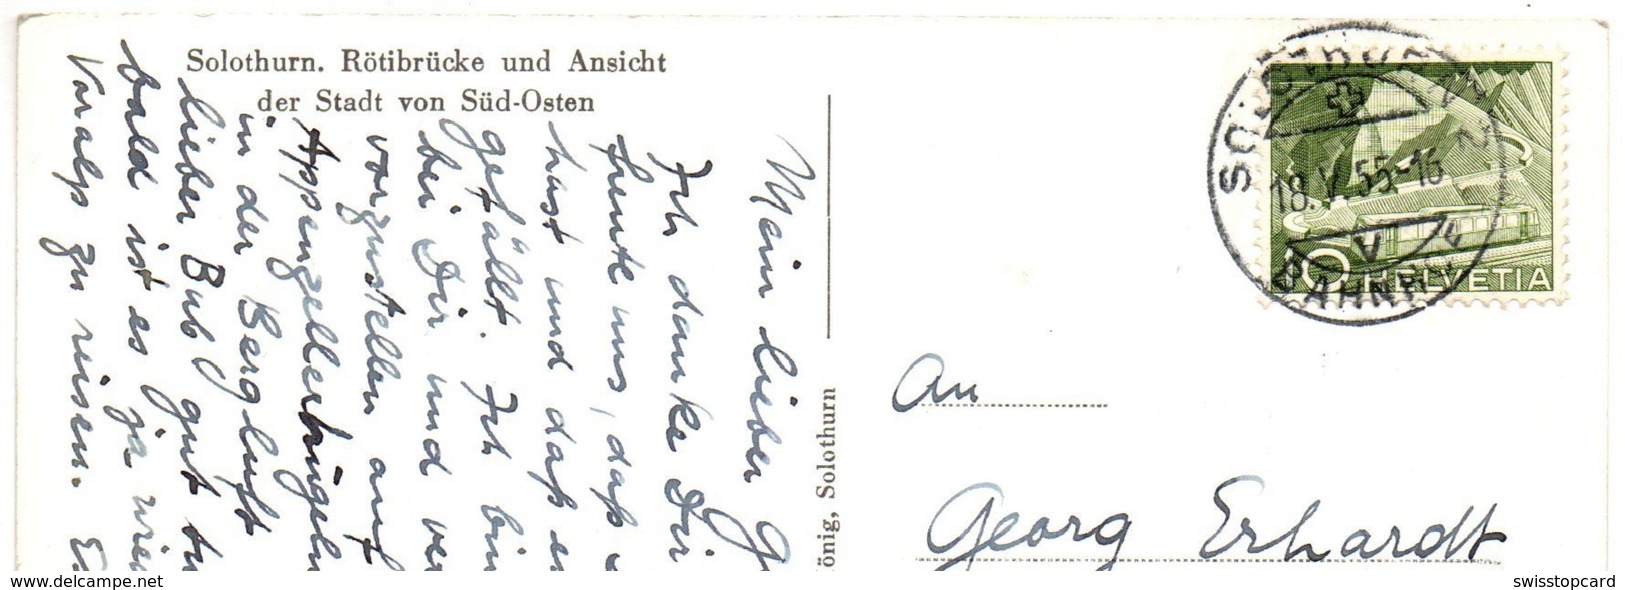 Solothurn. Rötibrücke und Ansicht
der Stadt von Süd-Osten
Mein lieber
Ich danke Dir
heute uns, daß
hast und daß
gefällt. Ich bin
bei Dir und
vorzustellen auf
Appenzellerhügeln
in der Bergluft
lieber Bub gut
bald ist es ja
Voralp zu reisen.
König, Solothurn
SOLOTHURN 2
18.V.55-16
V
BAHNH
10 HELVETIA
An
Georg Erhardt
swisstopcard